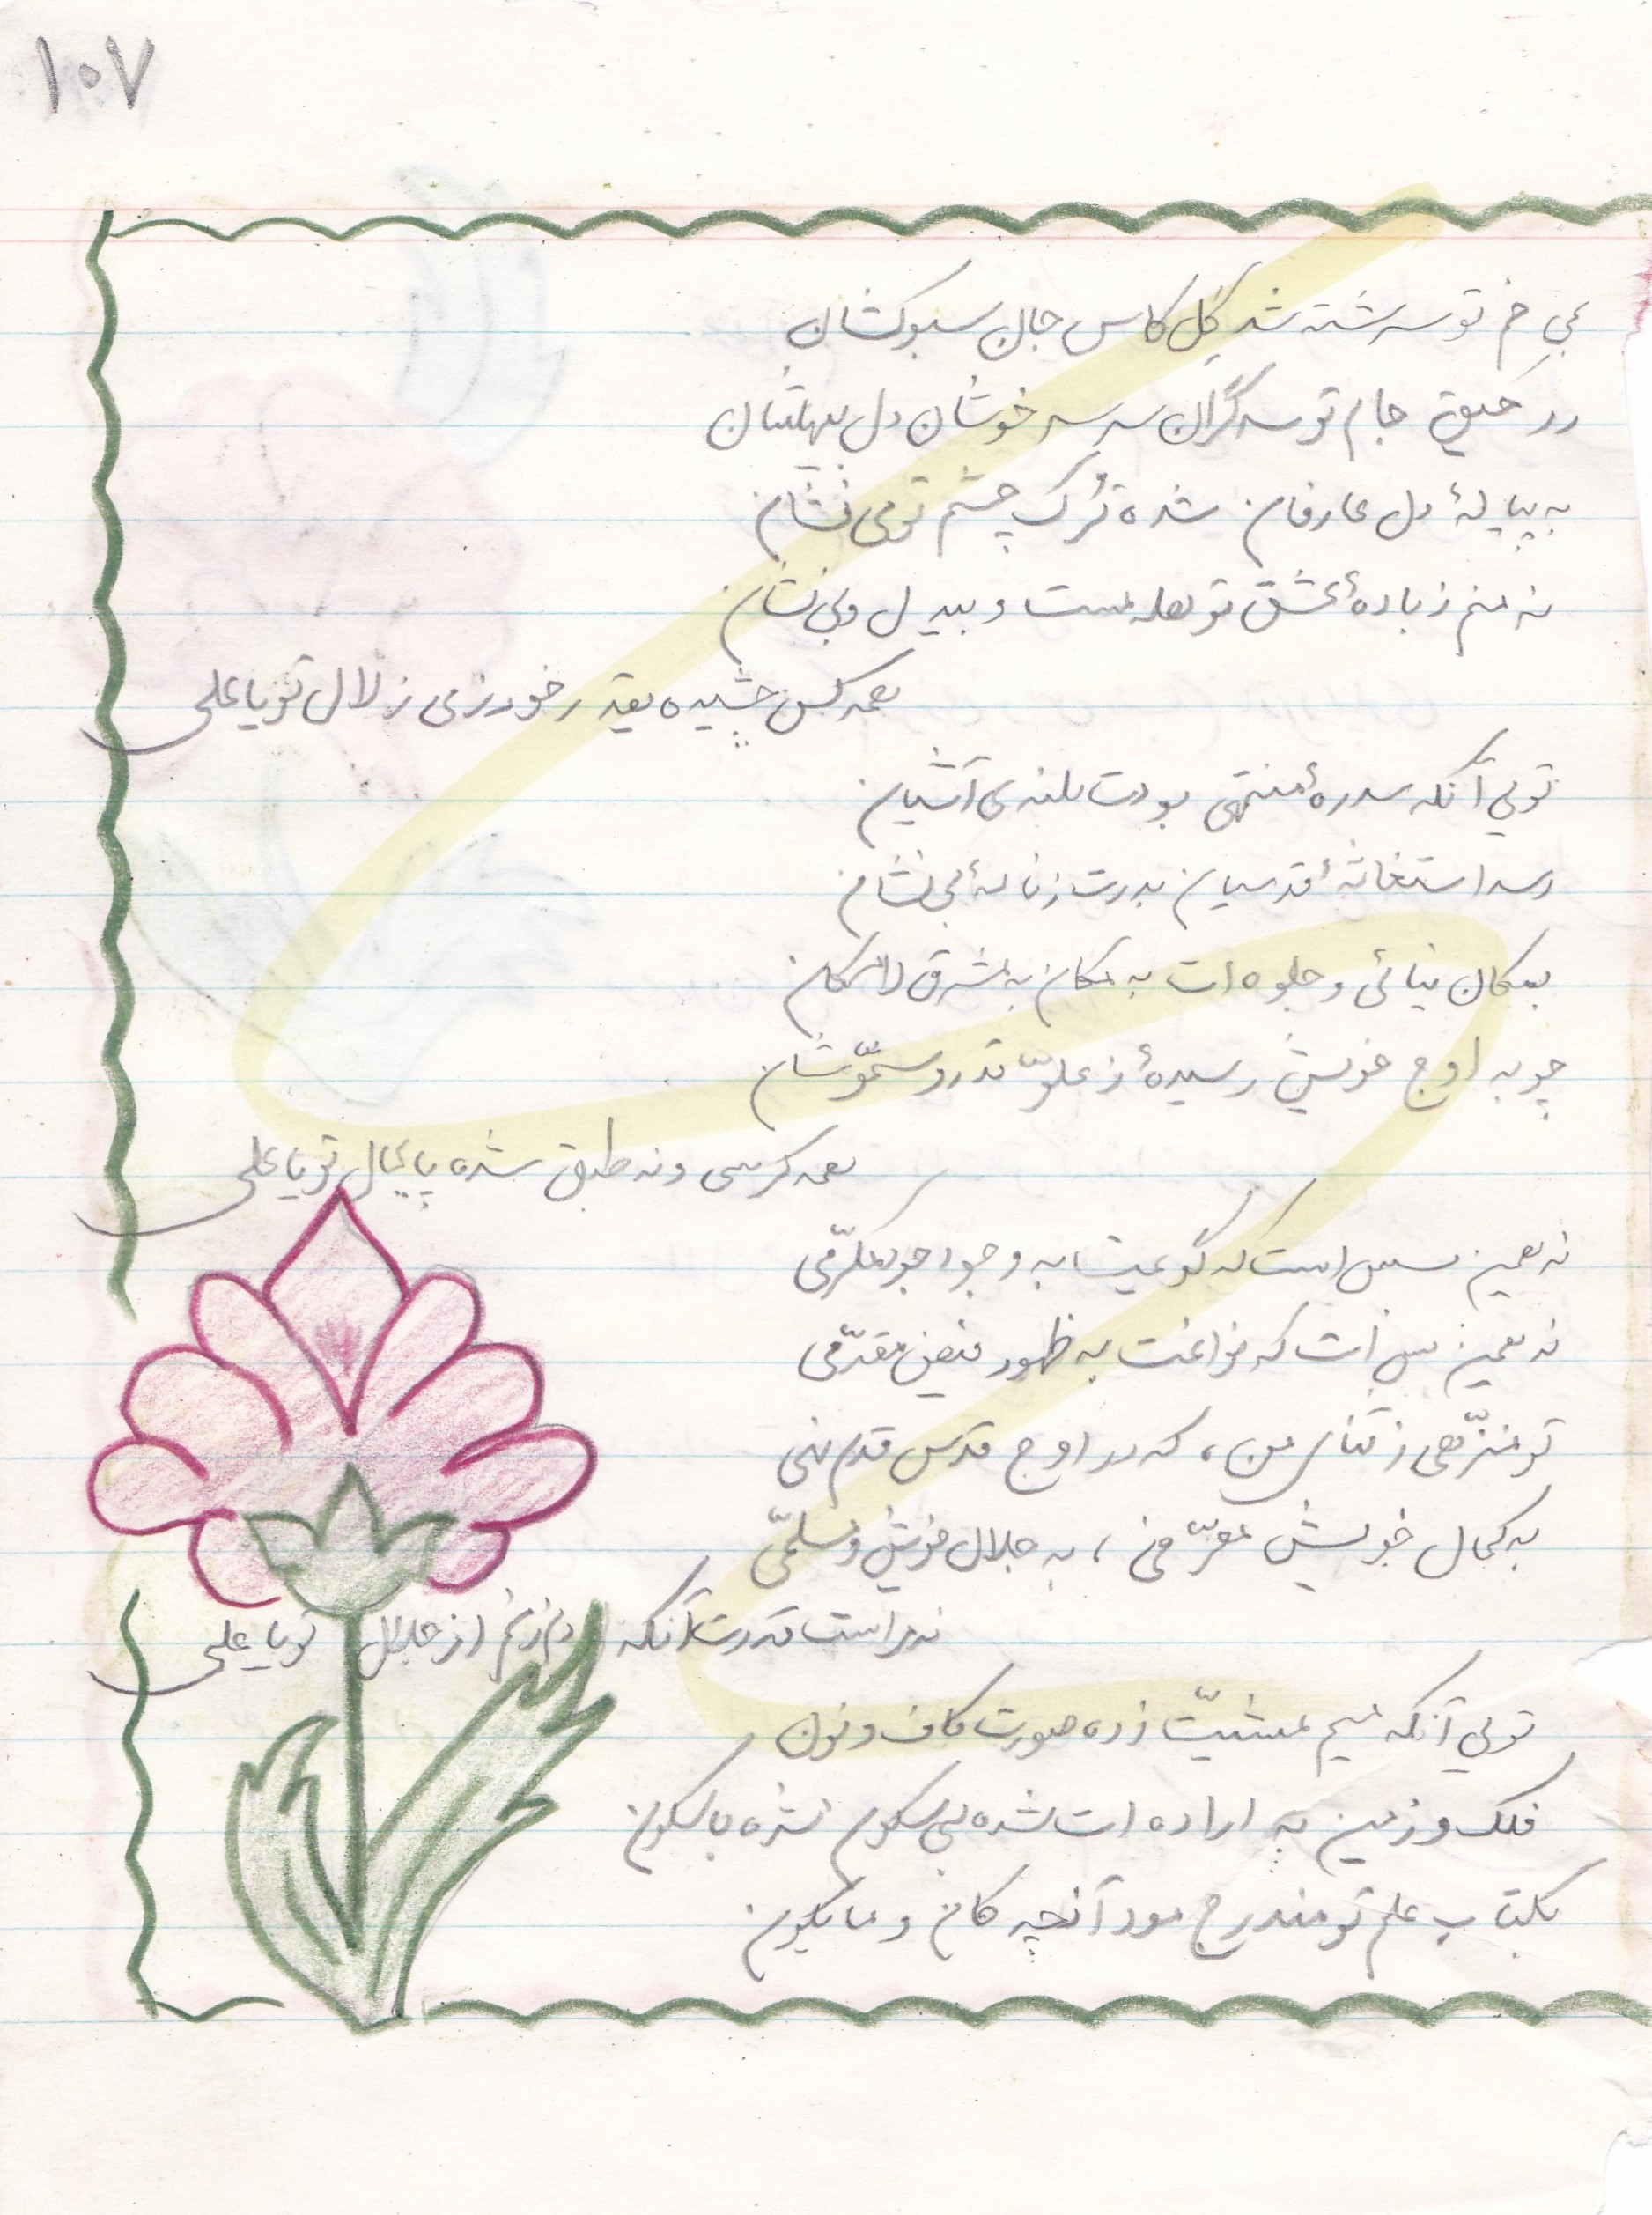 ۱۰۷
می خم تو سرشته شد گل کاس جان سبوکشان
ز رحیق جام تو سرگران سر سرخوشان دل بیهشان
به پیالهٔ دل عارفان شده ترک چشم تو می فشان
نه منم ز بادهٔ عشق تو همه مست و بیدل و بی نشان
همه کس چشیده بقدر خود ز می زلال تو یا علی
تویی آنکه سدرهٔ منتهی بودت بلندی آشیان
رسد استغاثهٔ قدسیان بدرت ز نالهٔ بی نشان
بمکان نیائی و جلوه ات به مکان به مشرق لامکان
چو به اوج خویش رسیدهٔ ز علوّ قدر و سموّ شان
همه کرسی و نه طبق شده پایمال تو یا علی
نه همین بس است که گویمت به وجود جود مکرّمی
نه همین بس است که خوانمت به ظهور فیض مقدّمی
تو منزّهی ز ثنای من، که در اوج قدس قدم نهی
به کمال خویش معرّفی، به جلال خویش مسلّمی
نه مراست قدرت آنکه دم زنم از جلال تو یا علی
تویی آنکه میم مشیّت زده صورت کاف و نون
فلک و زمین به اراده ات شده بی سکون شده با سکون
بکتاب علم تو مندرج بود آنچه کان و ما یکون